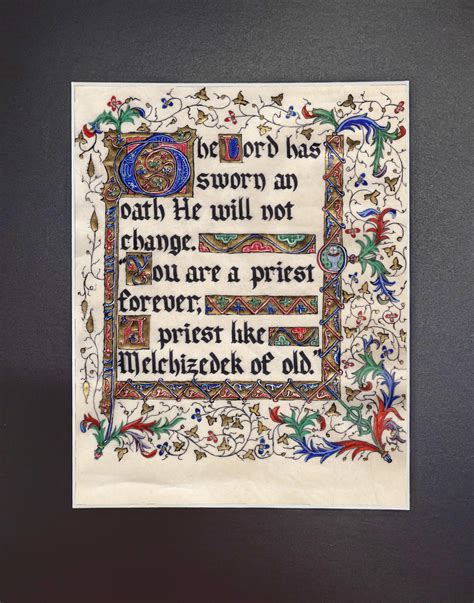 The Lord has
sworn an
oath He will not
change.
"You are a priest
forever,
A priest like
Melchizedek of old."